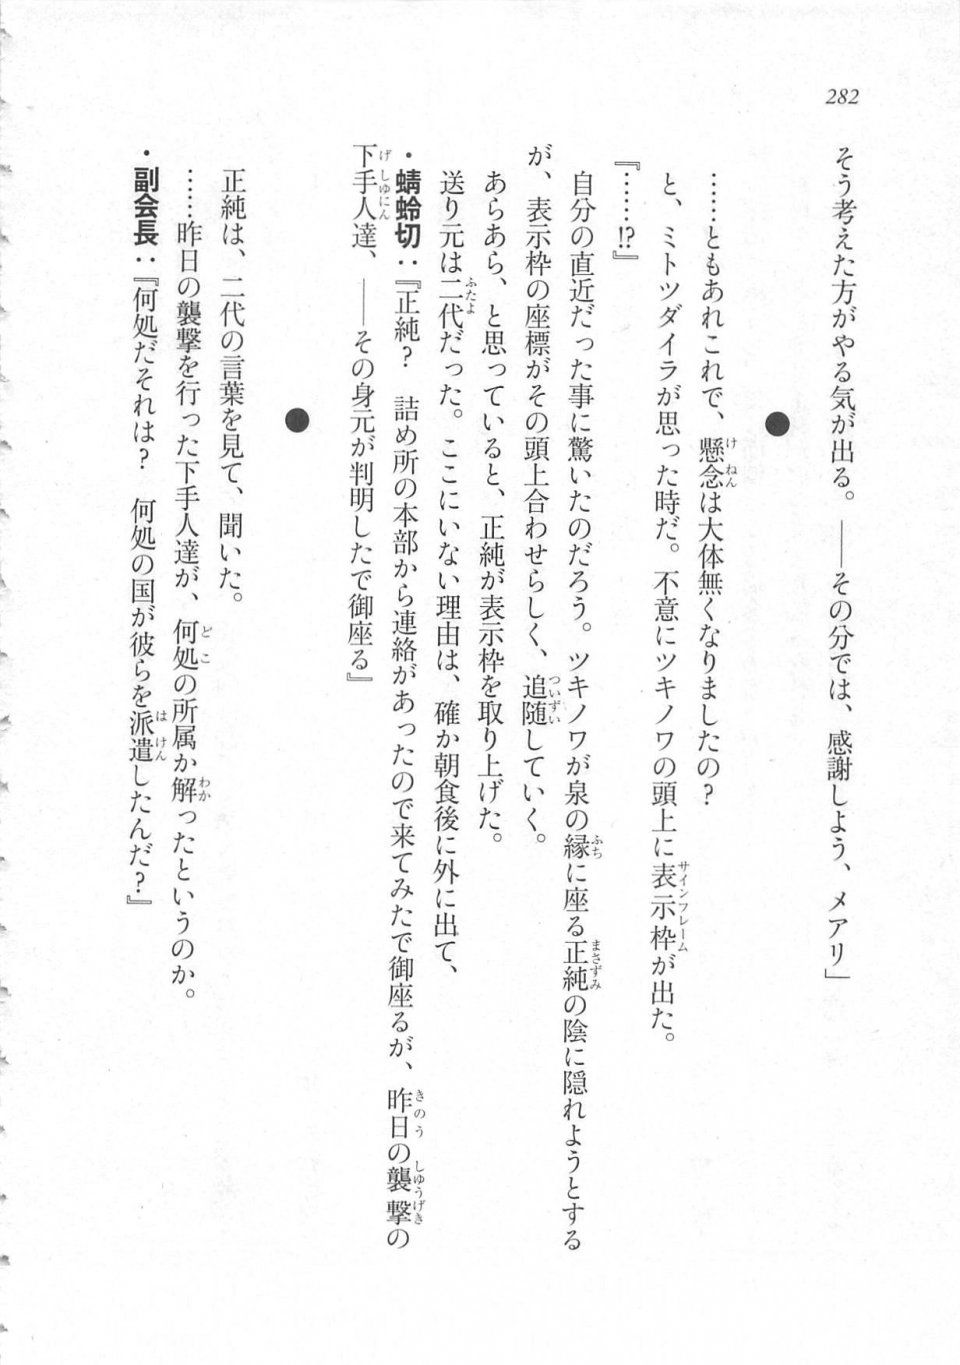 282
そう考えた方がやる気が出る。――その分では、感謝しよう、メアリ」
●
……ともあれこれで、懸念は大体無くなりましたの?
と、ミトツダイラが思った時だ。不意にツキノワの頭上に表示枠が出た。
『……!?』
自分の直近だった事に驚いたのだろう。ツキノワが泉の縁に座る正純の陰に隠れようとする
が、表示枠の座標がその頭上合わせらしく、追随していく。
あらあら、と思っていると、正純が表示枠を取り上げた。
送り元は二代だった。ここにいない理由は、確か朝食後に外に出て、
・蜻蛉切:『正純? 詰め所の本部から連絡があったので来てみたで御座るが、昨日の襲撃の
下手人達、――その身元が判明したで御座る』
●
正純は、二代の言葉を見て、聞いた。
……昨日の襲撃を行った下手人達が、何処の所属か解ったというのか。
・副会長:『何処だそれは? 何処の国が彼らを派遣したんだ?』